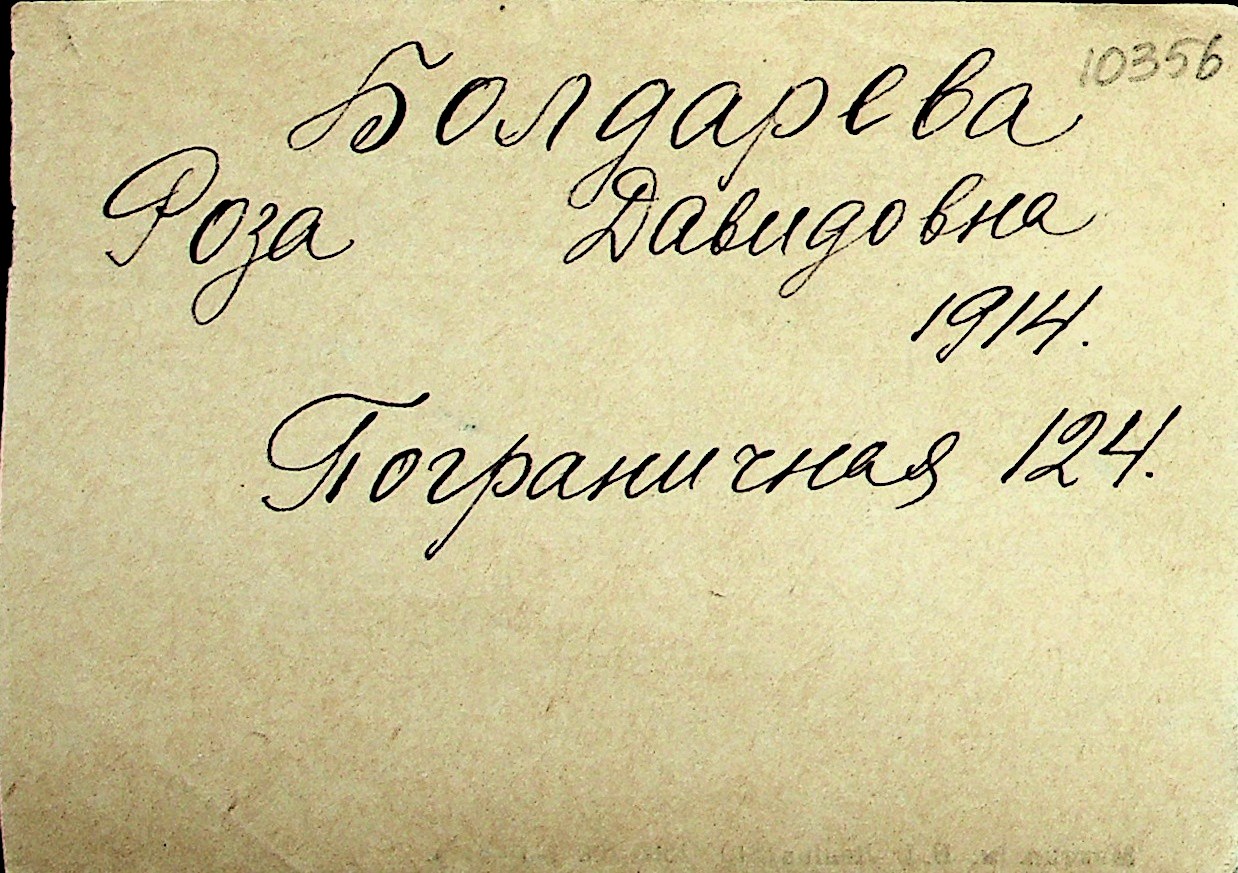 10356
Болдарева
Роза Давидовна
1914.
Пограничная 124.